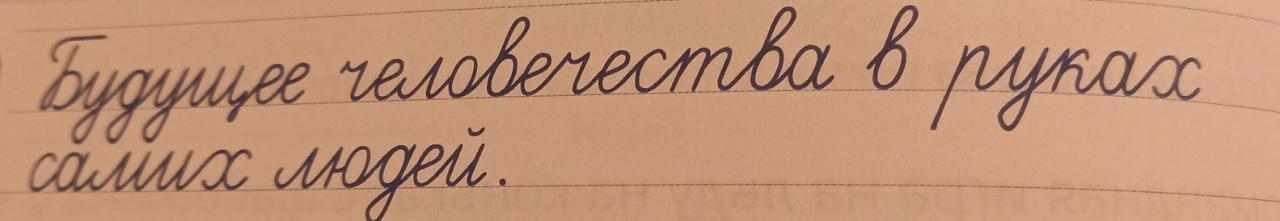 Будущее человечества в руках
самих людей.